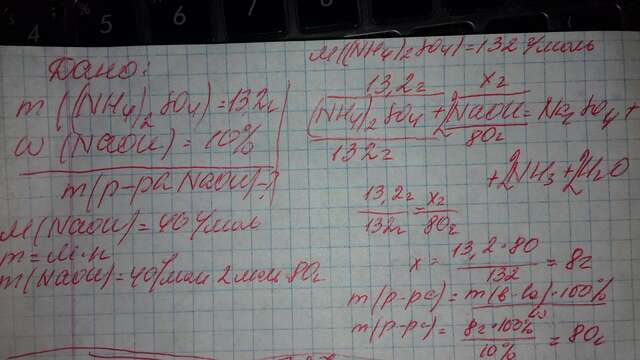 4 5 6 7 8
Дано:
m((NH4)2SO4)=13,2г
w(NaOH)=10%
m(р-ра NaOH)-?
M(NaOH)=40г/мол
m=M·n
m(NaOH)=40г/мол 2мол=80г
M((NH4)2SO4)=132г/моль
13,2г xг
(NH4)2SO4+2NaOH=Na2SO4+
132г 80г
+2NH3+2H2O
13,2г/132г=xг/80г
x=13,2·80/132=8г
m(р-ра)=m(в-ва)·100%/w
m(р-ра)=8г·100%/10%=80г